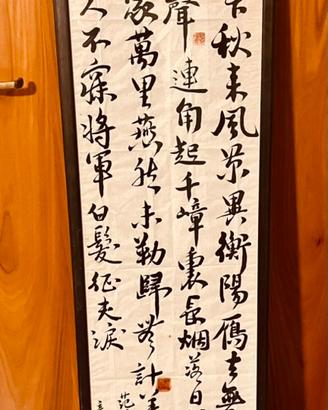 下秋来風景異衡陽鴈去無
聲連角起千嶂裏長烟落日
家萬里燕然未勒歸無計羌
人不寐將軍白髮征夫淚
范